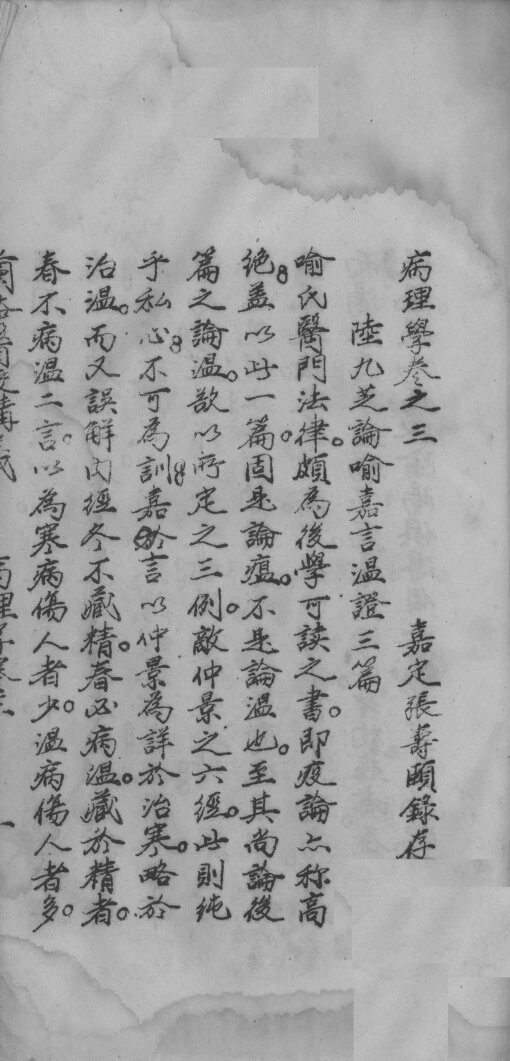 病理學卷之三　嘉定張壽頤錄存
陸九芝論喻嘉言温證三篇
喻氏醫門法律。頗為後學可讀之書。即疫論亦称高
絶。蓋以此一篇。固是論瘟。不是論温也。至其尚論後
篇之論温。欲以所定之三例。敵仲景之六經。此則純
乎私心。不可為訓。嘉言以仲景為詳於治寒。略於
治温。而又誤解內經冬不藏精。春必病温。藏於精者。
春不病温二言。以為寒病傷人者少。温病傷人者多。